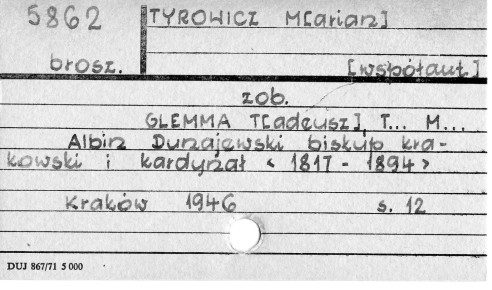 5862 TYROWICZ M[arian]
brosz. [współaut.]
zob.
GLEMMA T[adeusz], T... M...
Albin Dunajewski biskup kra-
kowski i kardynał < 1817 - 1894 >
Kraków 1946 s. 12
DUJ 867/71 5 000